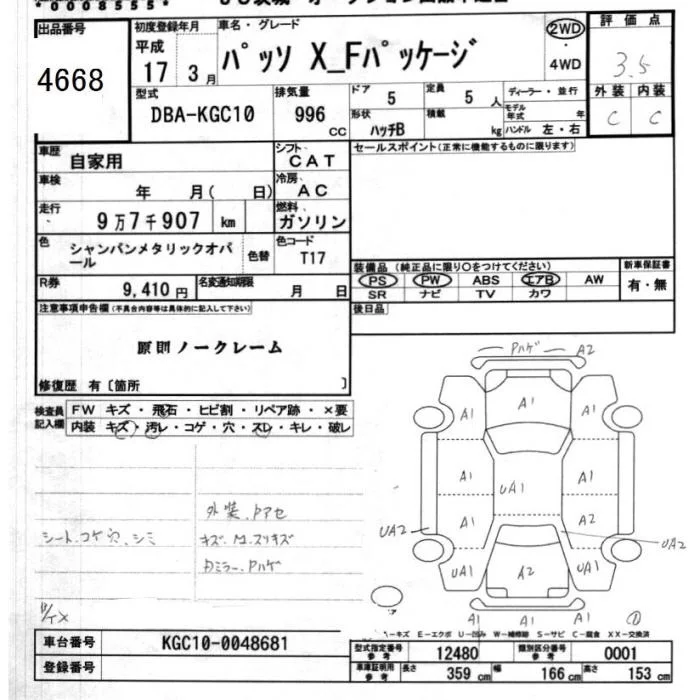 *0008555*
出品番号
4668
初度登録年月
平成
17 3月
車名・グレード
パッソ X_Fパッケージ
2WD
・
4WD
評価点
3.5
外装 内装
C C
型式
DBA-KGC10
排気量
996
CC
ドア 5
定員 5 人
形状
ハッチB
積載
kg
ディーラー・並行
モデル年式 年
ハンドル 左・右
車歴
自家用
シフト
CAT
セールスポイント(正常に機能するものに限ります)
車検
年 月( 日)
冷房
AC
走行
9万7千907 km
燃料
ガソリン
色
シャンパンメタリックオパール
色替
色コード
T17
装備品(純正品に限り○をつけてください)
PS PW ABS エアB AW
SR ナビ TV カワ
新車保証書
有・無
R券
9,410円
名変通知期限
月 日
後日品
注意事項申告欄(不具合内容等は具体的に記入して下さい)
原則ノークレーム
修復歴 有〔箇所 〕
検査員
記入欄
FW キズ・飛石・ヒビ割・リペア跡・×要
内装 キズ・汚レ・コゲ・穴・スレ・キレ・破レ
シート、コゲ穴、シミ
外装、Pアセ
キズ、M、スリキズ
Dミラー、Pハゲ
Pハゲ A2
A1 A1 A1
A1 A1
UA1
A1 A2
UA2 UA2
UA1 A2 UA1
A1 A1 A1
E-エクボ U-凹み W-補修跡 S-サビ C-腐食 XX-交換済
車台番号
KGC10-0048681
登録番号
型式指定番号
参考
12480
類別区分番号
参考
0001
車庫証明用
参考
長さ 359 cm
幅 166 cm
高さ 153 cm